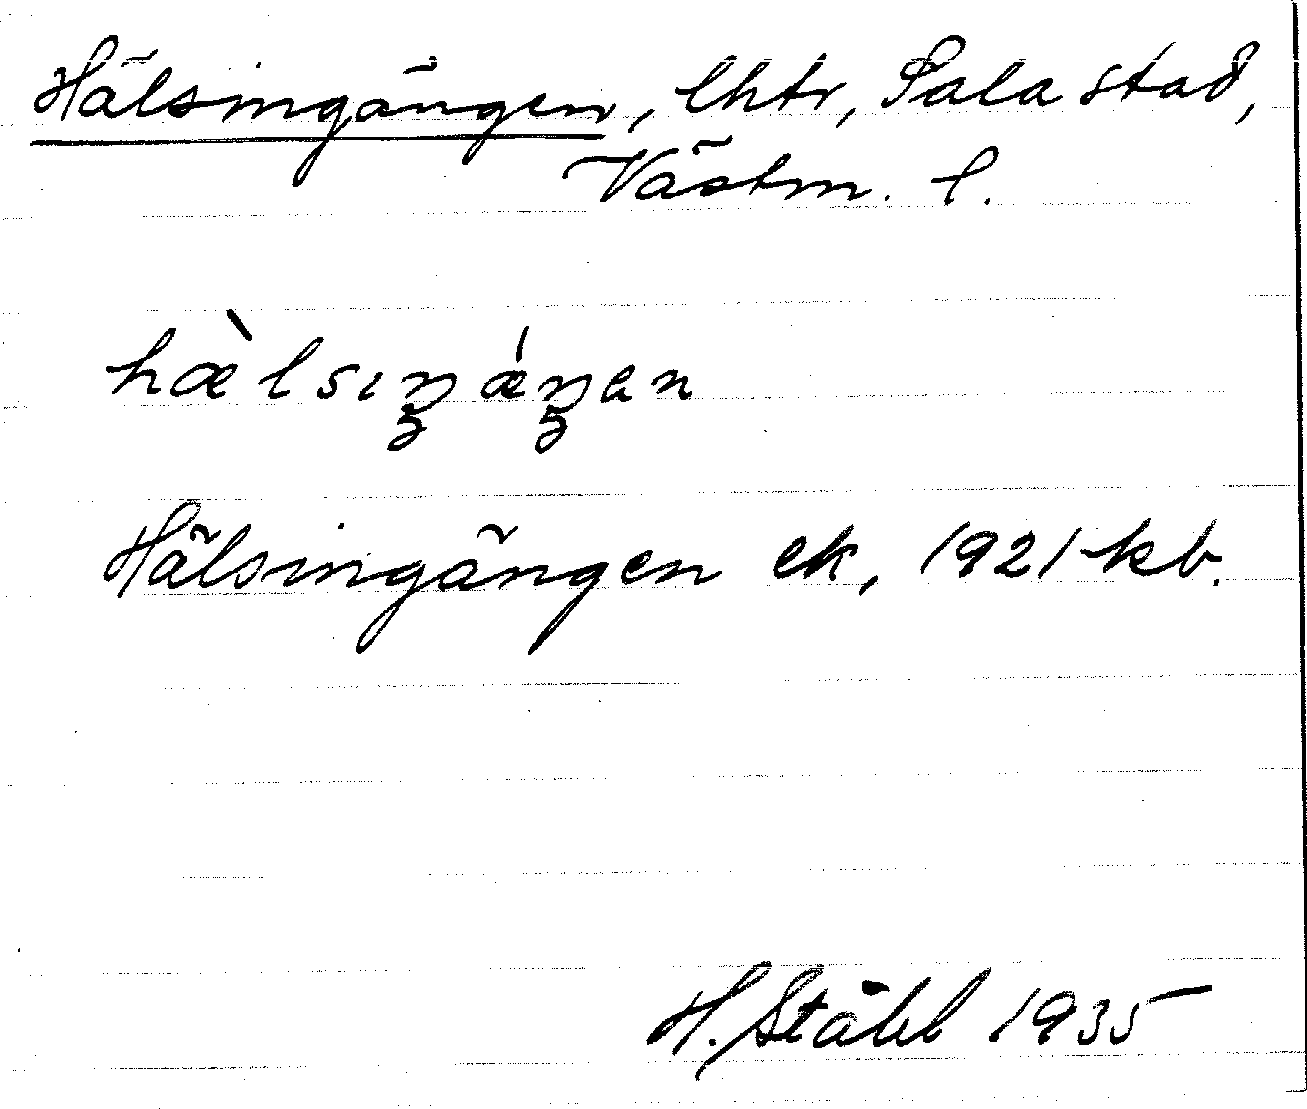 Hälsingängen, lhtr, Sala stad,
Västm. l.
hæ̀lsıŋǽŋen
Hälsingängen ek, 1921 kb.
H. Ståhl 1935